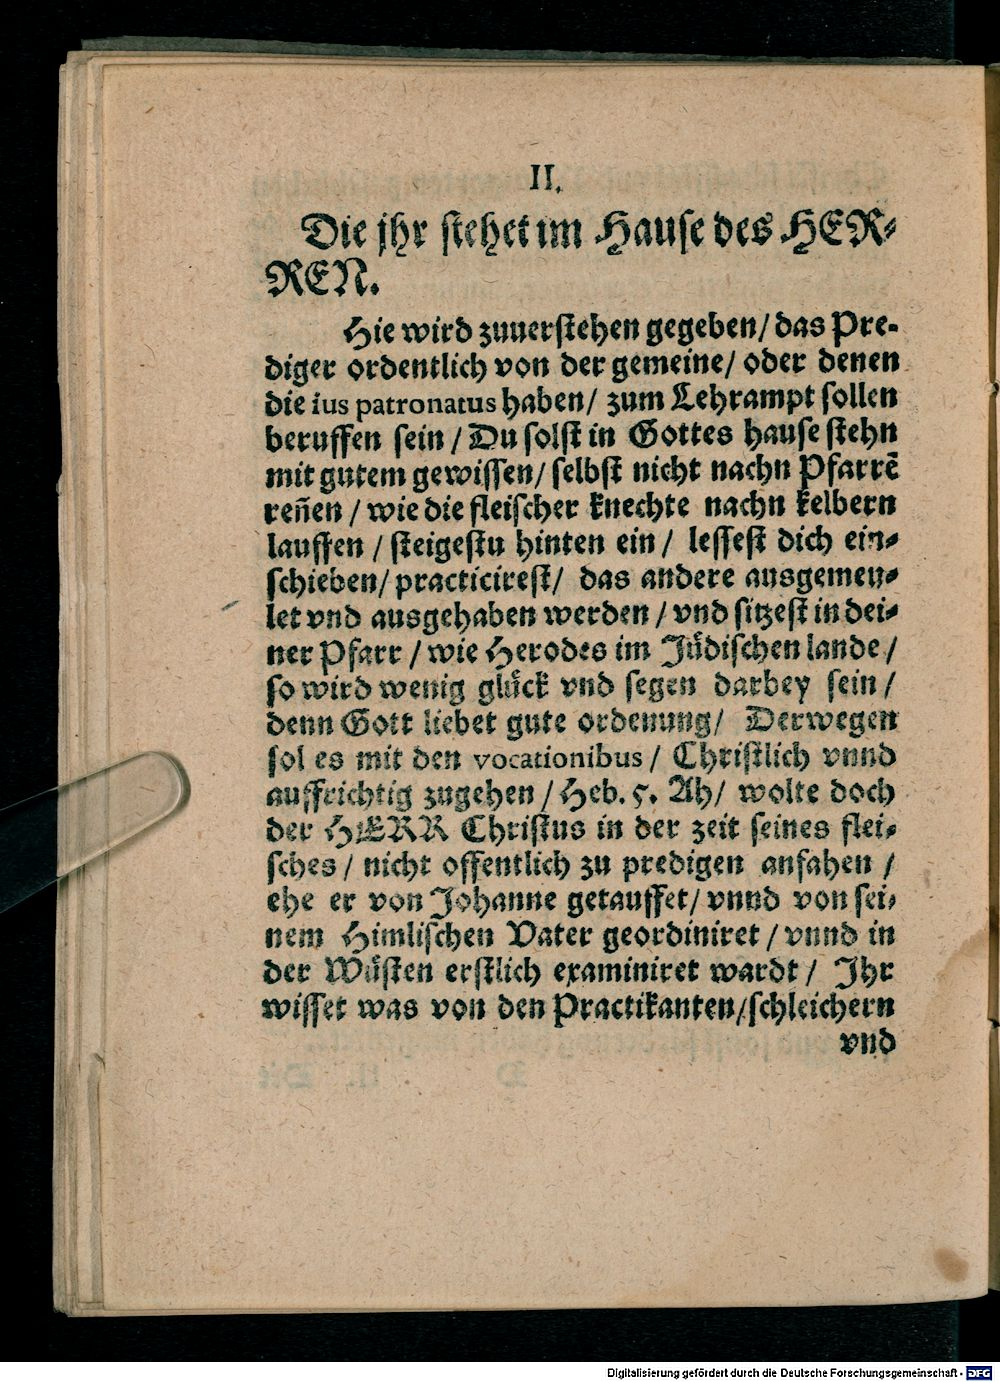 II.
Die jhr stehet im Hause des HER-
REN.
Hie wird zuuerstehen gegeben/ das Pre-
diger ordentlich von der gemeine/ oder denen
die ius patronatus haben/ zum Lehrampt sollen
beruffen sein / Du solst in Gottes hause stehn
mit gutem gewissen/ selbst nicht nachn Pfarrē
ren̄en / wie die fleischer knechte nachn kelbern
lauffen / steigestu hinten ein / lessest dich ein-
schieben/ practicirest/ das andere ausgemeu-
let vnd ausgehaben werden / vnd sitzest in dei-
ner Pfarr / wie Herodes im Jüdischen lande /
so wird wenig glück vnd segen darbey sein /
denn Gott liebet gute ordenung/ Derwegen
sol es mit den vocationibus / Christlich vnnd
auffrichtig zugehen / Heb. 5. Ah/ wolte doch
der HERR Christus in der zeit seines flei-
sches / nicht offentlich zu predigen anfahen /
ehe er von Johanne getauffet/ vnnd von sei-
nem Himlischen Vater geordiniret / vnnd in
der Wüsten erstlich examiniret wardt / Ihr
wisset was von den Practikanten/schleichern
vnd
Digitalisierung gefördert durch die Deutsche Forschungsgemeinschaft - DFG